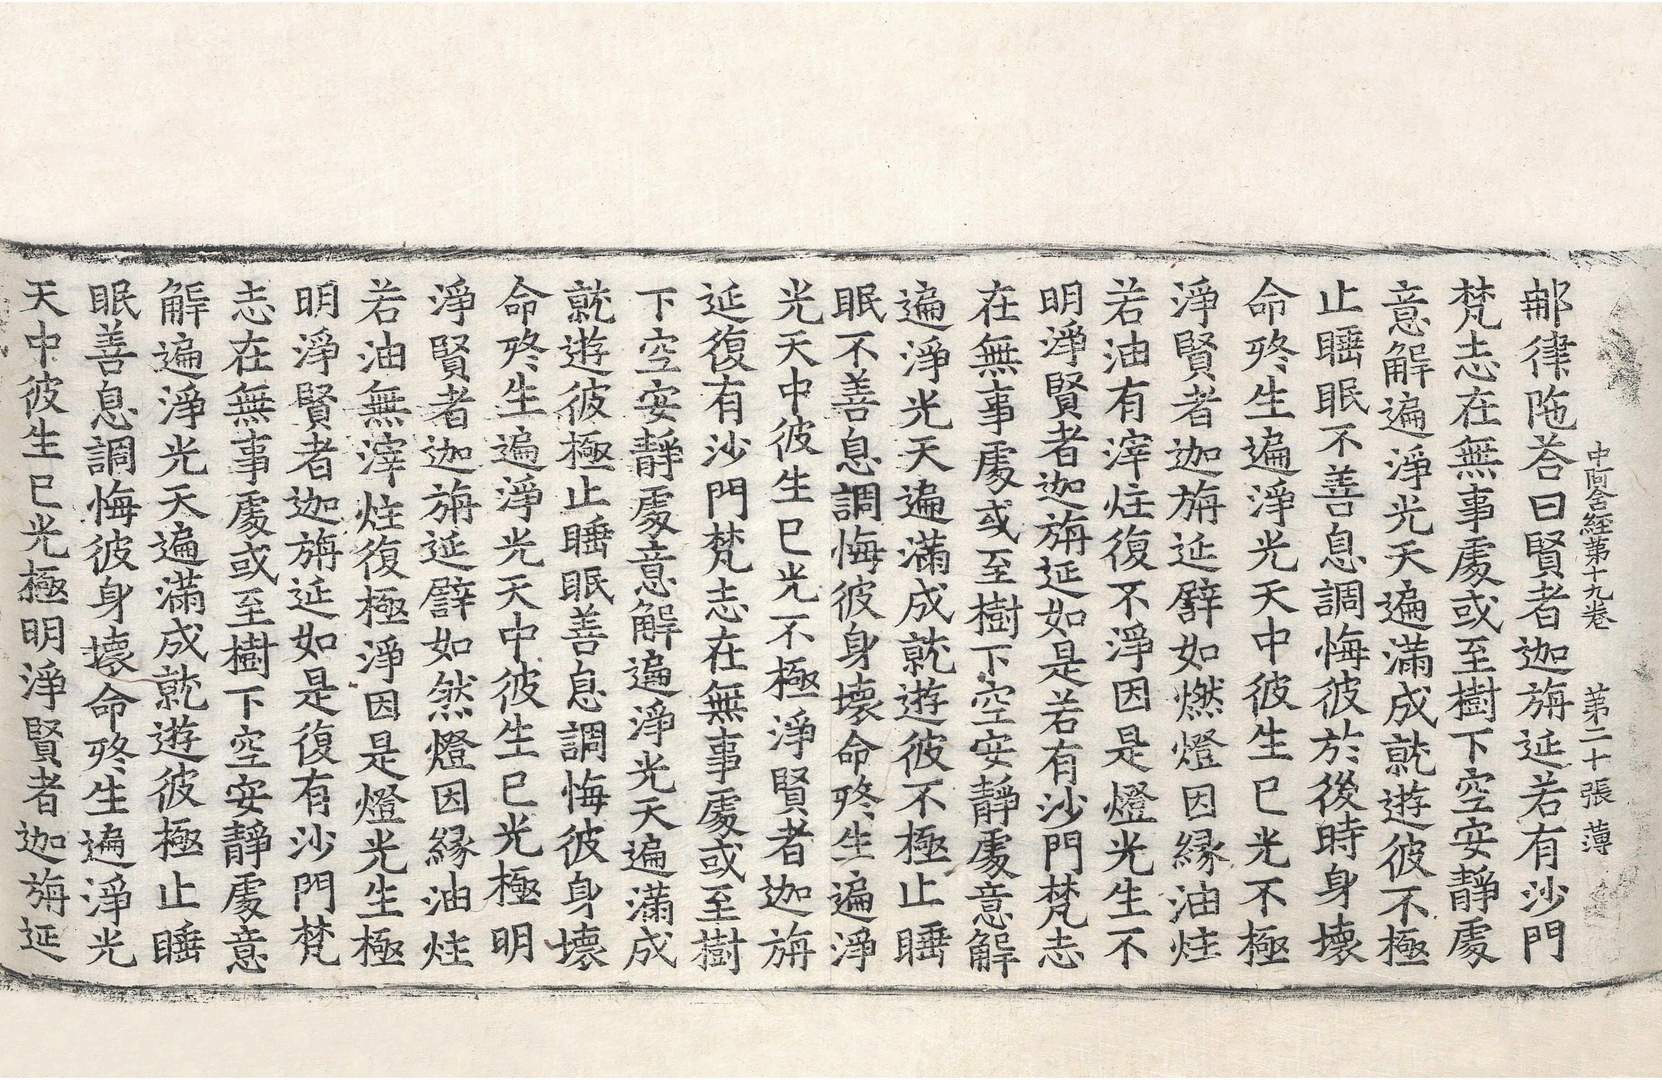 中阿含經第十九卷 第二十張 薄
那律陁荅曰賢者迦旃延若有沙門
梵志在無事處或至樹下空安靜處
意解遍淨光天遍滿成就遊彼不極
止睡眠不善息調悔彼於後時身壞
命終生遍淨光天中彼生已光不極
淨賢者迦旃延譬如燃燈因緣油炷
若油有滓炷復不淨因是燈光生不
明淨賢者迦旃延如是若有沙門梵志
在無事處或至樹下空安靜處意解
遍淨光天遍滿成就遊彼不極止睡
眠不善息調悔彼身壞命終生遍淨
光天中彼生已光不極淨賢者迦旃
延復有沙門梵志在無事處或至樹
下空安靜處意解遍淨光天遍滿成
就遊彼極止睡眠善息調悔彼身壞
命終生遍淨光天中彼生已光極明
淨賢者迦旃延譬如然燈因緣油炷
若油無滓炷復極淨因是燈光生極
明淨賢者迦旃延如是復有沙門梵
志在無事處或至樹下空安靜處意
解遍淨光天遍滿成就遊彼極止睡
眠善息調悔彼身壞命終生遍淨光
天中彼生已光極明淨賢者迦旃延